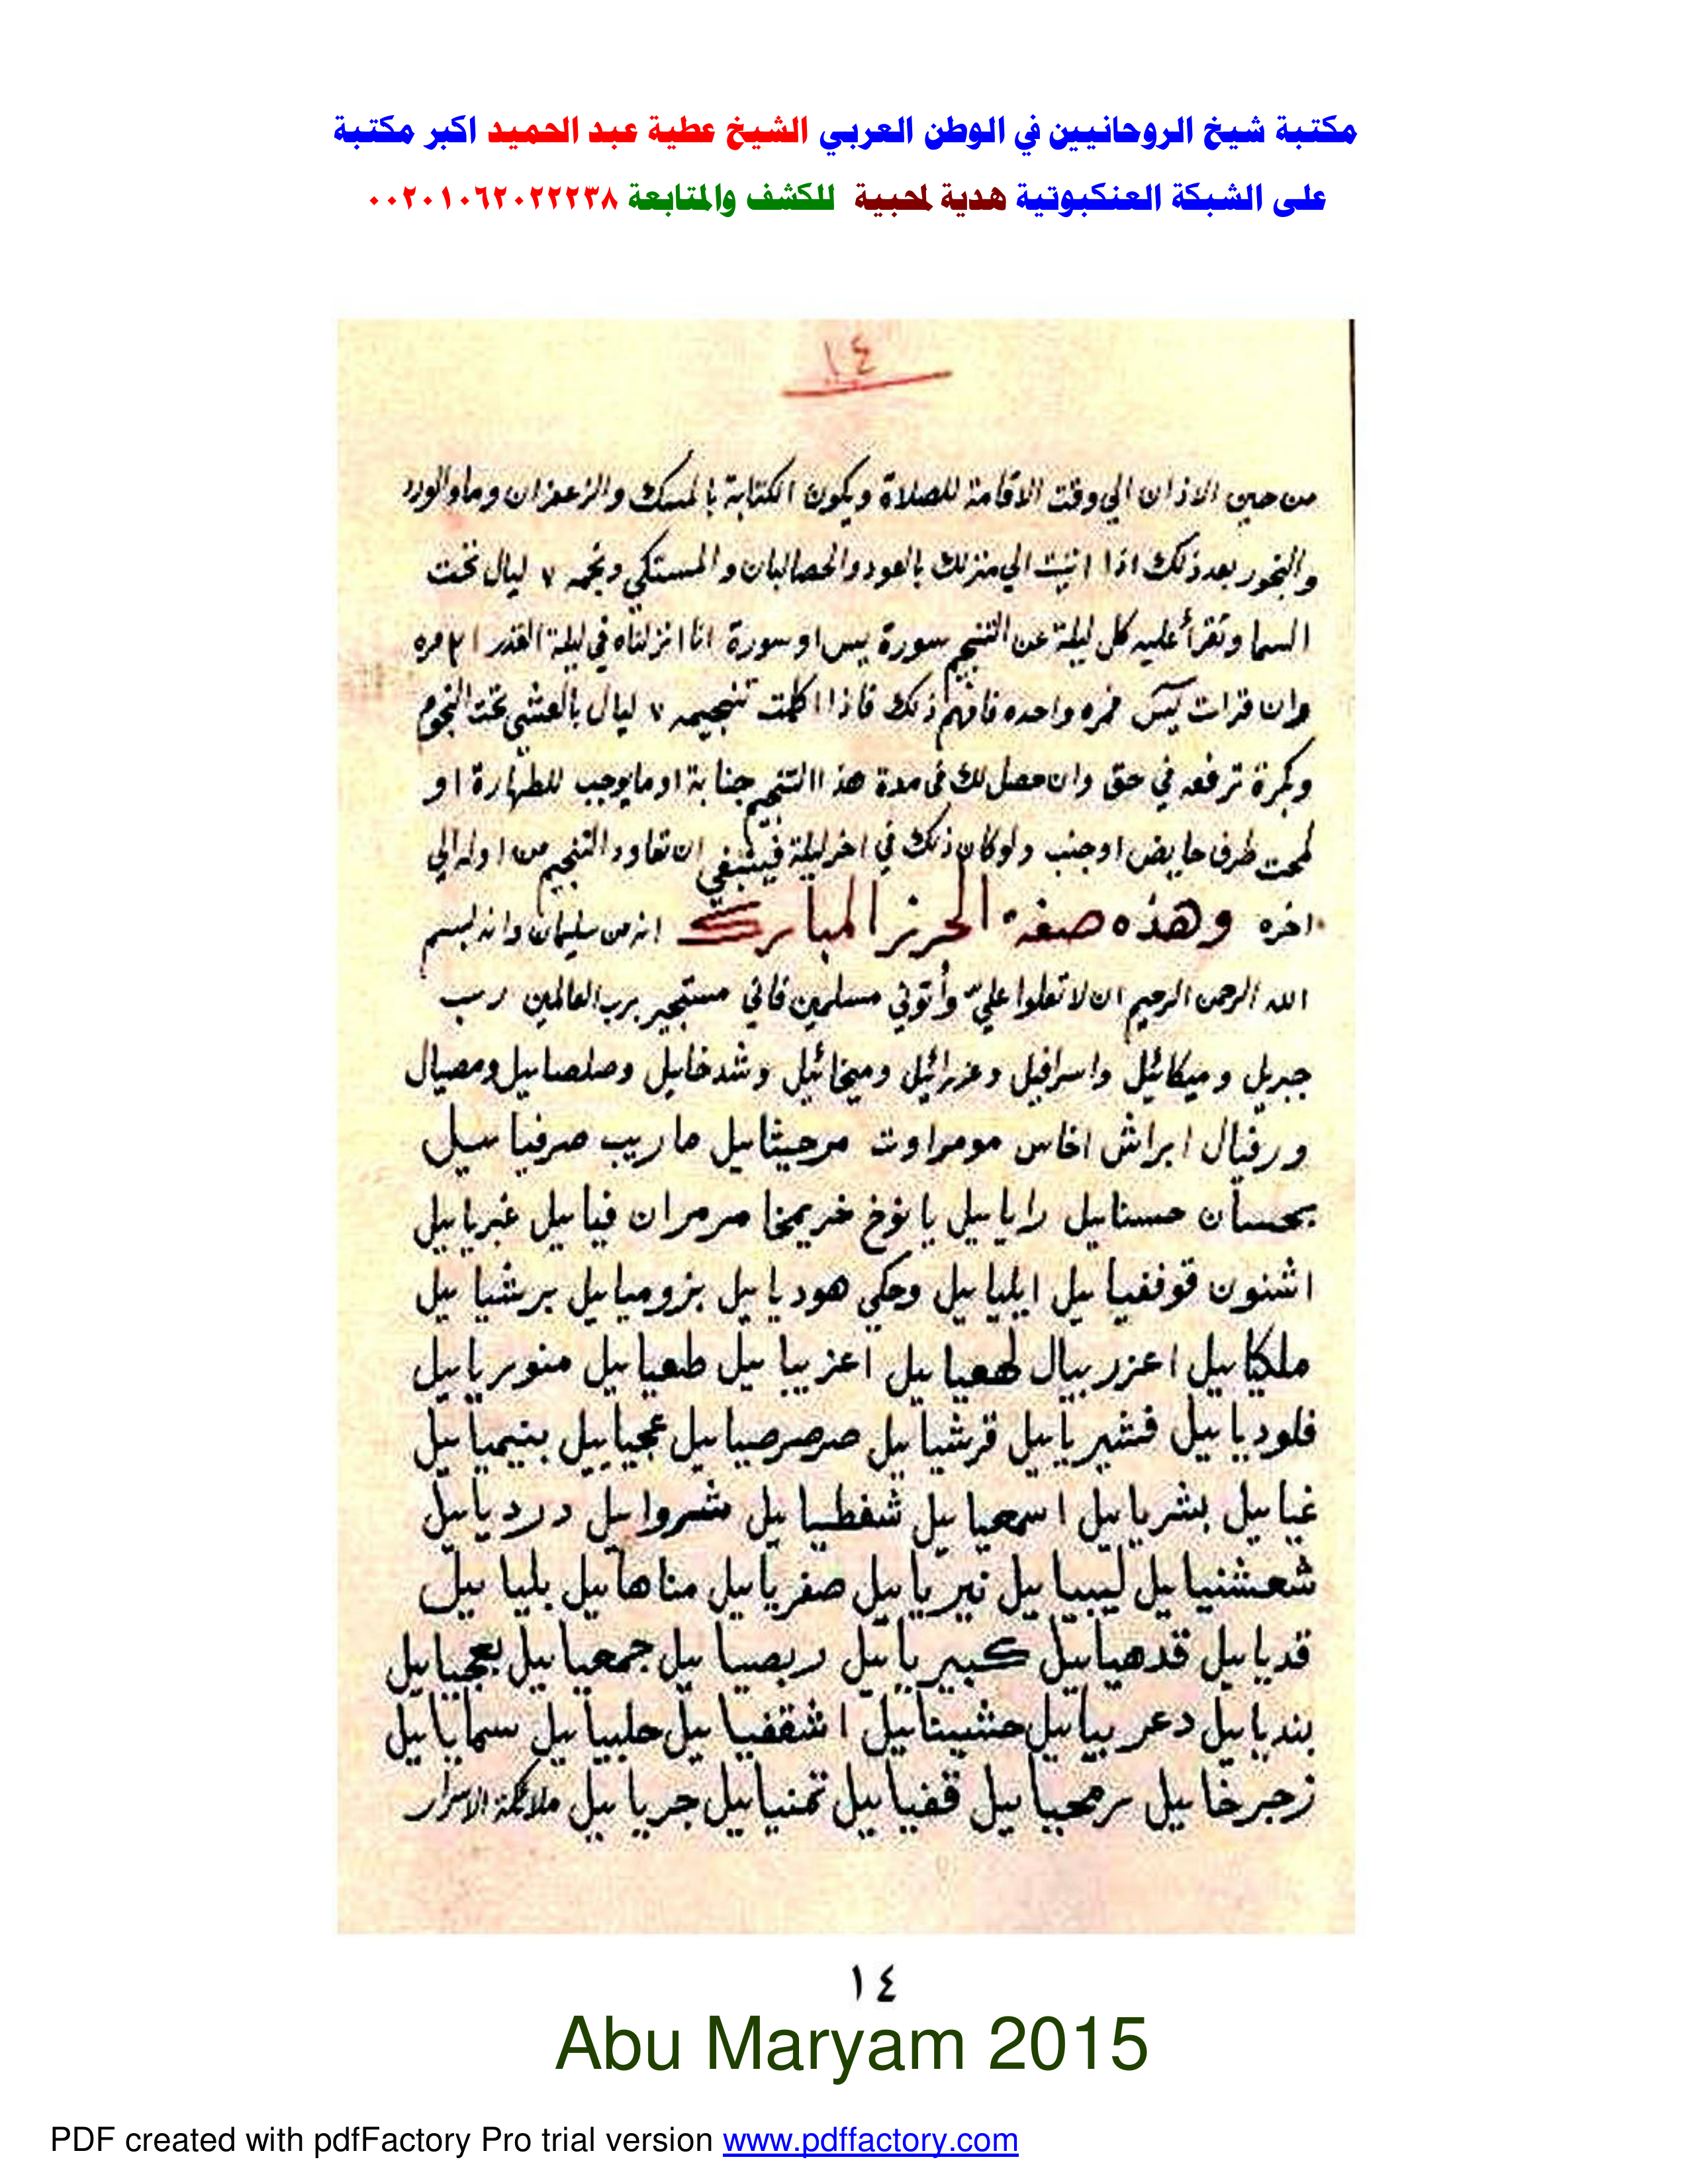 مكتبة شيخ الروحانيين في الوطن العربي الشيخ عطية عبد الحميد اكبر مكتبة
على الشبكة العنكبوتية هدية لمحبية للكشف والمتابعة ٠٠٢٠١٠٦٢٠٢٢٢٣٨
١٤
من حين الاذان الي وقت الاقامة للصلاة ويكون الكتابة بالمسك والزعفران وماو الورد
والبخور بعد ذلك اذا اتيت الي منزلك بالعود والحصالبان والمستكي وتنجمه ٧ ليال تحت
السما وتقرأ عليه كل ليلة عن التنجيم سورة يس او سورة انا انزلناه في ليلة القدر ٢١ مره
وان قرات يس فمره واحده فافهم ذلك فاذا اكملت تنجيمه ٧ ليال بالعشي تحت النجوم
وبكرة ترفعه في حق وان حصل لك في مدة هذا التنجيم جنابة او ما يوجب للطهارة او
لمحت طرف حايض او جنب ولو كان ذلك في اخر ليلة فينبغي ان تعاود التنجيم من اوله الي
اخره وهذه صفة الحرز المبارك انه من سليمان وانه بسم
الله الرحمن الرحيم ان لا تعلوا علي وأتوني مسلمين فاني مستجير برب العالمين رب
جبريل وميكائيل واسرافيل وعزرائيل وميخائيل وشدخاييل وصلصاييل ومصيال
ورفيال ابراش اخاس مومراوت مرحيثاييل ماريب صرفياييل
بحسان حسناييل راياييل يانوخ خريمخا مرمران فياييل غبرياييل
اشنون قوففياييل ايلياييل وحكي هودياييل بزومياييل برشياييل
ملكاييل اعزربيال لهعياييل اعزيباييل طعياييل منورياييل
فلودياييل فشيرياييل قرشياييل صرصرصياييل عجياييل بنيمياييل
غياييل بشرياييل اسمعياييل شفطياييل شرواييل دردياييل
شعشنياييل ليبياييل نيرياييل صفرياييل مناهاييل بلياييل
قدياييل قدهياييل كبيرياييل ربصياييل جمعياييل بعجياييل
بندياييل دعربياييل حشيثاييل اشقفياييل حلبياييل سماياييل
زجرخاييل رمحياييل قفياييل تمنياييل جرياييل ملائكة الاسرار
١٤
Abu Maryam 2015
PDF created with pdfFactory Pro trial version www.pdffactory.com